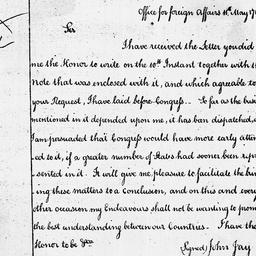 Office for foreign Affairs 11th May 17
Sir
I have received the Letter you did
me the Honor to write on the 10th Instant together with th
Note that was enclosed with it, and which agreable to
your Request, I have laid before Congress. So far as the busin
mentioned in it depended upon me, it has been dispatched, a
I am persuaded that Congress would have more early atten
ed to it, if a greater number of States had sooner been repre
sented in it. It will give me pleasure to facilitate the brin
ing these matters to a conclusion, and on this and every
other occasion my Endeavours shall not be wanting to prom
the best understanding between our Countries. I have the
Honor to be &ca
(signed) John Jay